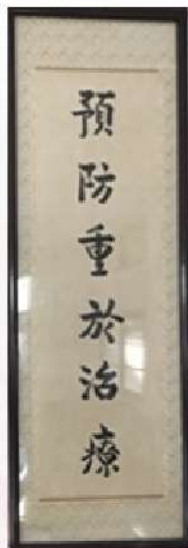 預防重於治療